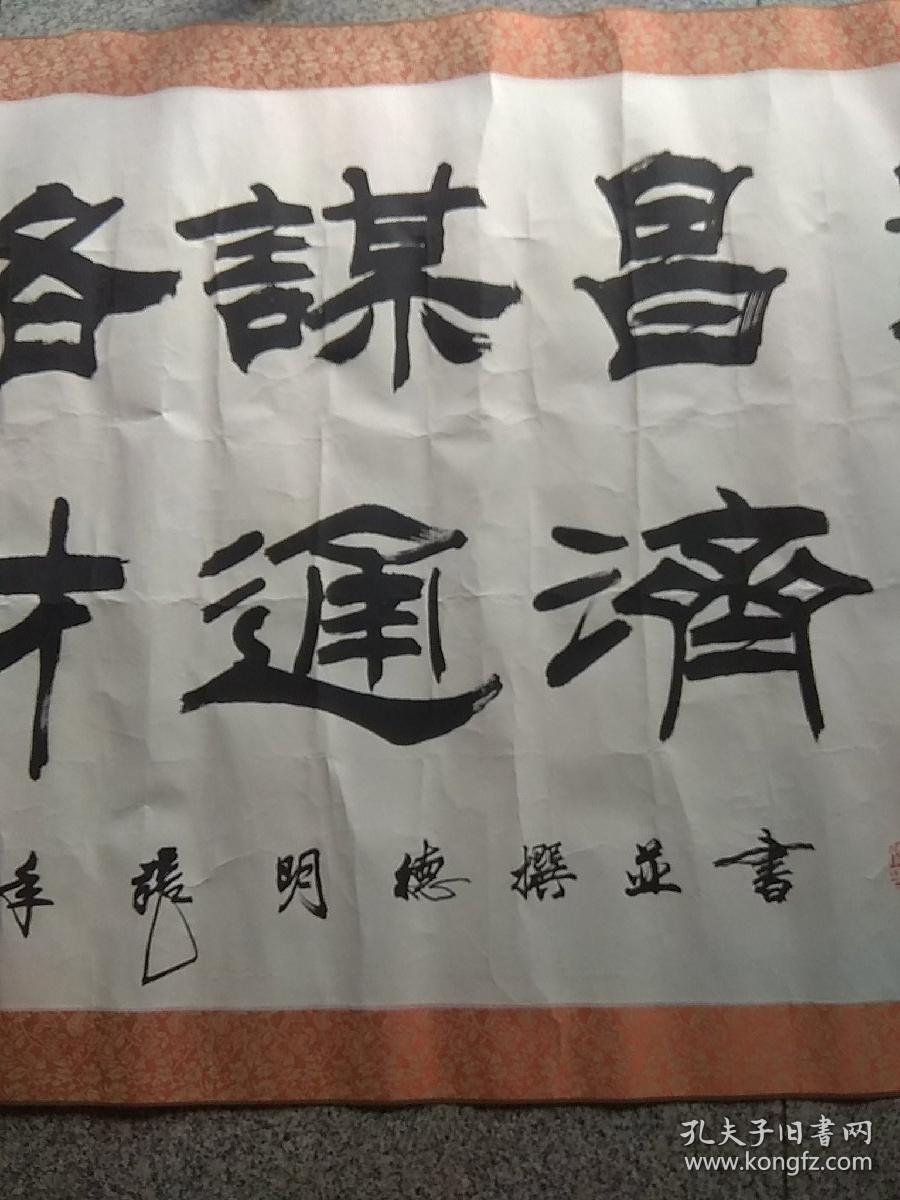 謀昌
才通濟
年張明德撰並書
孔夫子旧書网
www.kongfz.com